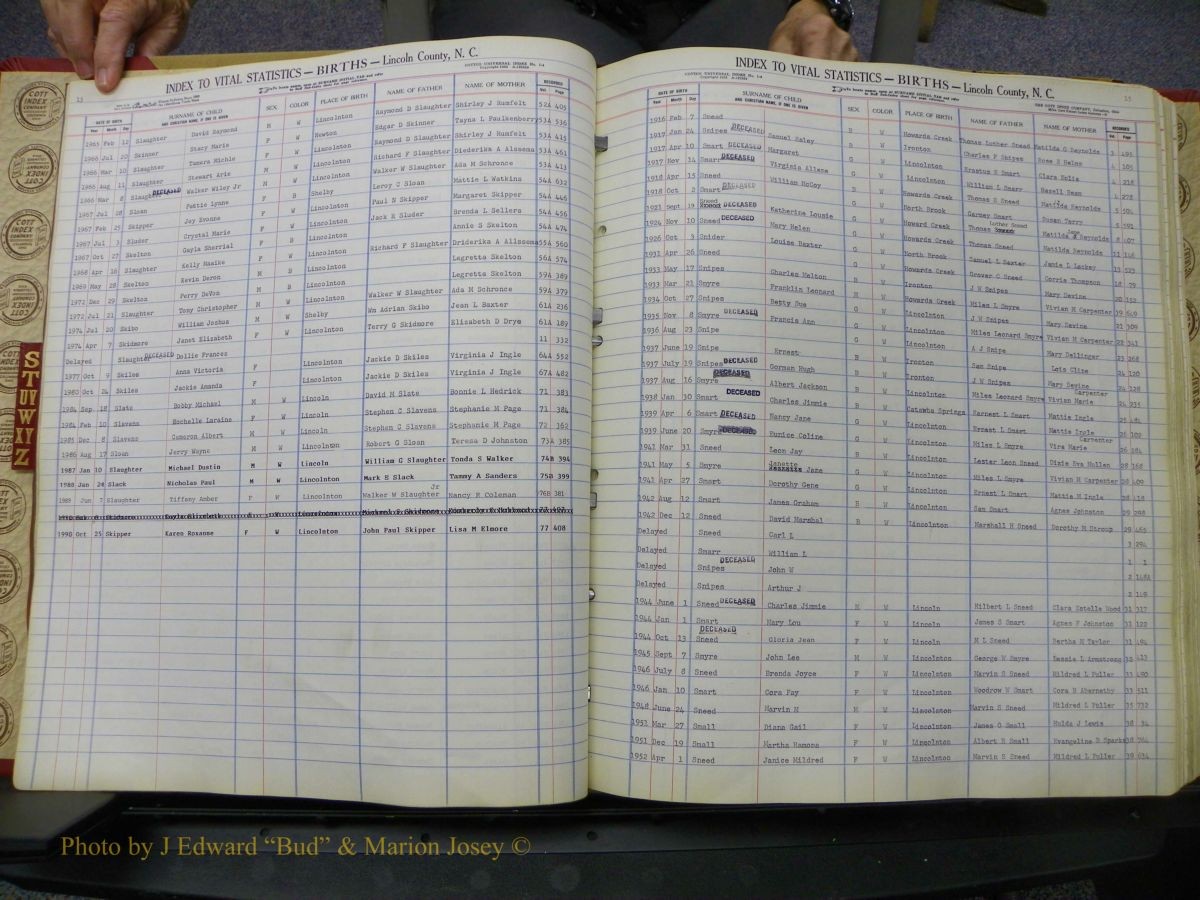 INDEX TO VITAL STATISTICS — BIRTHS — Lincoln County, N. C.
DATE OF BIRTH SURNAME OF CHILD SEX COLOR PLACE OF BIRTH NAME OF FATHER NAME OF MOTHER RECORDED
Year Month Day AND CHRISTIAN NAME, IF ONE IS GIVEN Vol. Page
1965 Feb 12 Slaughter David Raymond M W Lincolnton Raymond D Slaughter Shirley J Rumfelt 52A 405
1966 Jul 20 Skinner Stacy Marie F W Newton Edgar D Skinner Tayna L Faulkenberry 53A 536
1966 Mar 10 Slaughter Tamera Michle F W Lincolnton Raymond D Slaughter Shirley J Rumfelt 53A 415
1966 Aug 11 Slaughter Stewart Aris M W Lincolnton Richard F Slaughter Diederika A Allssma 53A 461
1966 Mar 8 Slaughter DECEASED Walker Wiley Jr M W Lincolnton Walker W Slaughter Ada M Schronce 53A 413
1967 Jul 28 Sloan Pettie Lynne F B Shelby Leroy C Sloan Mattie L Watkins 54A 612
1967 Feb 25 Skipper Joy Evonne F W Lincolnton Paul N Skipper Margaret Skipper 54A 456
1967 Jul 3 Sluder Crystal Marie F W Lincolnton Jack E Sluder Brenda L Sellers 54A 456
1967 Oct 27 Skelton Gayla Sherrial F B Lincolnton Annie S Skelton 54A 474
1968 Apr 16 Slaughter Kelly Maaike F W Lincolnton Richard F Slaughter Driderika A Allssema 55A 560
1969 May 28 Skelton Kevin Deron M B Lincolnton Legretta Skelton 56A 574
1972 Dec 29 Skelton Perry DeVon M B Lincolnton Legretta Skelton 59A 389
1972 Jul 21 Slaughter Tony Christopher M W Lincolnton Walker W Slaughter Ada M Schronce 59A 379
1974 Jul 20 Skibo William Joshua M W Shelby Wm Adrian Skibo Jean L Baxter 61A 236
1974 Apr 7 Skidmore Janet Elizabeth F W Lincolnton Terry G Skidmore Elizabeth D Drye 61A 189
Delayed Slaughter DECEASED Dollie Frances 11 332
1977 Oct 9 Skiles Anna Victoria F Lincolnton Jackie D Skiles Virginia J Ingle 64A 552
1980 Oct 24 Skiles Jackie Amanda F Lincolnton Jackie D Skiles Virginia J Ingle 67A 482
1984 Sep 18 Slate Bobby Michael M W Lincolnton David M Slate Bonnie L Hedrick 71 383
1984 Feb 10 Slavens Rochelle Laraine F W Lincolnton Stephen C Slavens Stephanie M Page 71 384
1985 Dec 8 Slavens Cameron Albert M W Lincolnton Stephen C Slavens Stephanie M Page 72 362
1986 Aug 17 Sloan Jerry Wayne M W Lincolnton Robert G Sloan Teresa D Johnston 73A 385
1987 Jan 30 Slaughter Michael Dustin M W Lincoln William G Slaughter Tonda S Walker 74B 394
1988 Jan 24 Slack Nicholas Paul M W Lincoln Mark E Slack Tammy A Sanders 75B 399
1989 Jun 7 Slaughter Tiffany Amber F W Lincolnton Walker W Slaughter Jr Nancy R Coleman 76B 381
1990 Oct 25 Skipper Karen Roxanne F W Lincolnton John Paul Skipper Lisa M Elmore 77 408
INDEX TO VITAL STATISTICS — BIRTHS — Lincoln County, N. C.
DATE OF BIRTH SURNAME OF CHILD SEX COLOR PLACE OF BIRTH NAME OF FATHER NAME OF MOTHER RECORDED
Year Month Day AND CHRISTIAN NAME, IF ONE IS GIVEN Vol. Page
1916 Feb 7 Snead B W Howards Creek Thomas Luther Snead Matilda C Reynolds 3 495
1917 Jan 24 Snipes DECEASED Samuel Haley B W Ironton Charles F Snipes Rosa S Helms 4 105
1917 Apr 10 Smart DECEASED Margaret G W Lincolnton Erastus S Smart Clara Helie 4 218
1917 Nov 14 Smarr DECEASED Virginia Allene G W Lincolnton William L Smarr Hazell Bean 4 272
1918 Apr 15 Snead William McCoy B W North Brook Thomas S Snead Matilda Reynolds 5 504
1918 Oct 2 Smart DECEASED Garney Smart Susan Tarry 5 591
1921 Sept 19 Sneed DECEASED Katherine Lousie G W Howard Creek Thomas Luther Sneed Matilda Jane Reynolds 8 407
1924 Nov 10 Sneed DECEASED Mary Helen G W Howards Creek Thomas Sneed Matilda Reynolds 11 146
1926 Oct 3 Snider Louise Baxter G W North Brook Samuel L Baxter Janie L Lackey 13 523
1931 Apr 26 Sneed Howards Creek Grover C Sneed Corrie Thompson 18 79
1933 May 17 Snipes Charles Melton B W Ironton J W Snipes Mary Sevine 20 152
1933 Mar 21 Smyre Franklin Leonard Howards Creek Miles L Smyre Vivian M Carpenter
1934 Oct 27 Snipes Betty Sue G W Lincolnton J W Snipes Mary Sevine 21 309
1935 Nov 8 Smyre DECEASED Francis Ann G W Lincolnton Miles Leonard Smyre Vivian M Carpenter 22 341
1936 Aug 23 Snipe A J Snipe Mary Dellinger 23 268
1937 June 19 Snipe Ernest B W Ironton Sam Snipe Lois Cline 24 120
1937 July 19 Snipes DECEASED Gorman Hugh B W Ironton J W Snipes Mary Sevine 24 128
1937 Aug 16 Smyre DECEASED Albert Jackson B W Catawba Springs Miles Leonard Smyre Vivian Marie Carpenter 24 235
1938 Jan 30 Smart DECEASED Charles Jimmie B W Lincolnton Earnest L Smart Mattie Ingle
1939 Apr 6 Smart DECEASED Nancy Jane G W Lincolnton Ernest L Smart Mattie Ingle 26 102
1939 June 20 Smyre DECEASED Eunice Coline G W Lincolnton Miles L Smyre Vira Marie Carpenter 26 184
1941 Mar 31 Sneed Leon Jay B W Lincolnton Lester Leon Sneed Dixie Eva Mullen 28 168
1941 May 5 Smyre Janette Jane G W Lincolnton Miles L Smyre Vivian M Carpenter 28 409
1941 Apr 27 Smart Dorothy Gene G W Lincolnton Ernest L Smart Mattie M Ingle 28 418
1942 Aug 12 Smart James Graham B W Lincolnton Sam Smart Agnes Johnston 29 298
1942 Dec 12 Sneed David Marshal B W Lincolnton Marshall H Sneed Dorothy M Shroup 29 465
Delayed Sneed Carl L 3 294
Delayed Smarr William L 1 1
Delayed Snipes DECEASED John W 2 148A
Delayed Snipes Arthur J 2 149
1944 June 1 Sneed DECEASED Charles Jimmie M W Lincoln Hilbert L Sneed Clara Estelle Hood 31 317
1944 Jan 1 Smart Mary Lou F W Lincoln James S Smart Agnes F Johnston 31 122
1944 Oct 13 Sneed DECEASED Gloria Jean F W Lincoln M L Sneed Bertha M Taylor 31 494
1945 Sept 7 Smyre John Lee M W Lincolnton George W Smyre Bessie L Armstrong 32 413
1946 July 8 Sneed Brenda Joyce F W Lincolnton Marvin S Sneed Mildred L Fuller 33 490
1946 Jan 10 Smart Cora Fay F W Lincolnton Woodrow W Smart Cora B Abernethy 33 511
1948 June 24 Sneed Marvin H M W Lincolnton Marvin S Sneed Mildred L Fuller 35 732
1951 Mar 27 Small Diane Gail F W Lincolnton James O Small Hulda J Lewis 38 34
1951 Dec 19 Small Martha Ramona F W Lincolnton Albert R Small Evangeline D Sparks 38 764
1952 Apr 1 Sneed Janice Mildred F W Lincolnton Marvin S Sneed Mildred L Fuller 39 634
COTT INDEX COMPANY
S T U V W X Y Z
Photo by J Edward “Bud” & Marion Josey ©